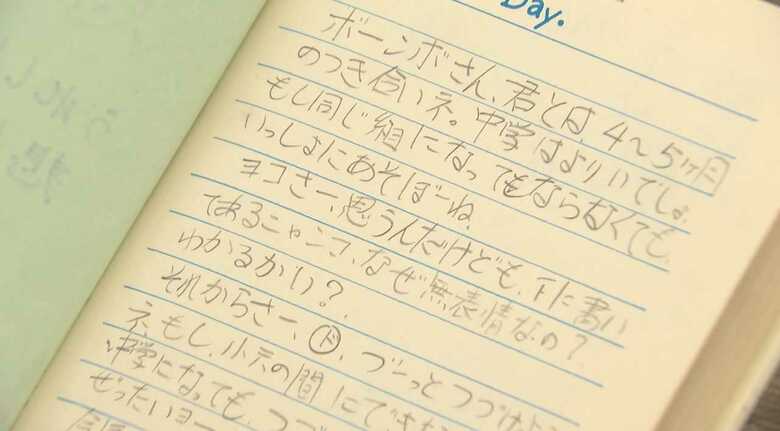 Day.
ボーンボさん、君とは、4〜5ヶ月
のつき合いネ。中学はよりいでしょ。
もし同じ組になってもならなくても、
いっしょにあそぼーね。
ヨコさー、思うんだけども、下に書い
てあるニャンコ、なぜ無表情なの?
わかるかい?
それからさー、ド、ズーっとつづけよ
ネ、もし、小六の間にでき
中学になっても、つづ
ぜったいヨー